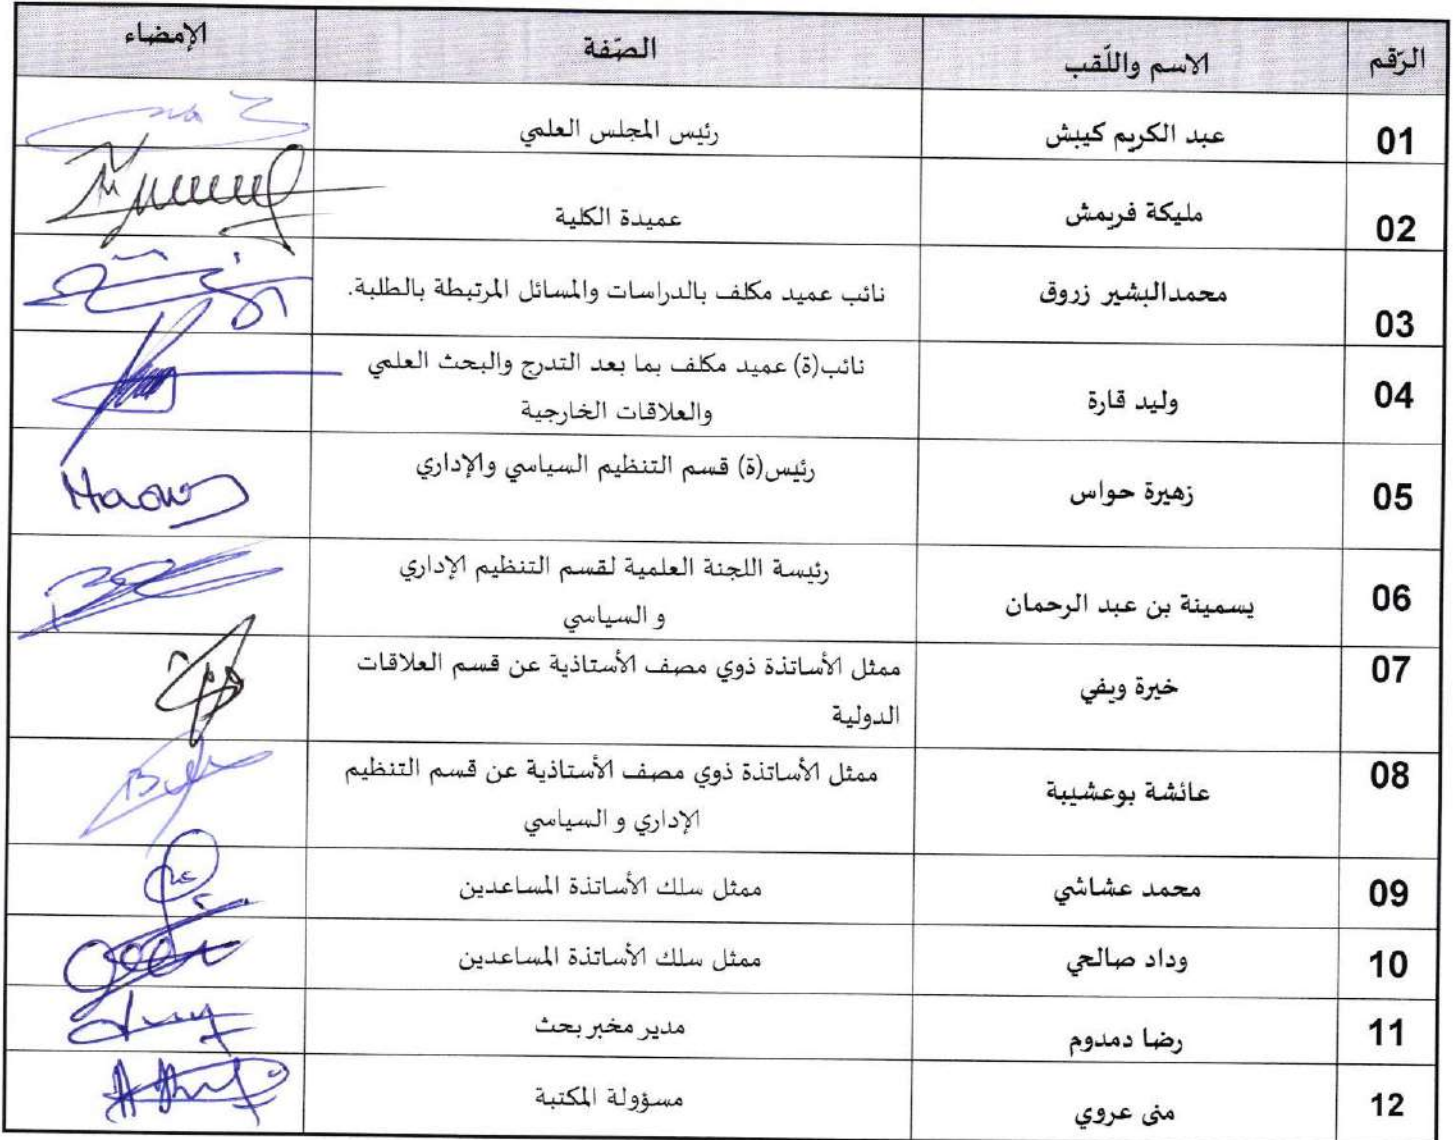 الرّقم الاسم واللّقب الصّفة الإمضاء
01 عبد الكريم كيبش رئيس المجلس العلمي
02 مليكة فريمش عميدة الكلية
03 محمدالبشير زروق نائب عميد مكلف بالدراسات والمسائل المرتبطة بالطلبة.
04 وليد قارة نائب(ة) عميد مكلف بما بعد التدرج والبحث العلمي
والعلاقات الخارجية
05 زهيرة حواس رئيس(ة) قسم التنظيم السياسي والإداري
Haows
06 يسمينة بن عبد الرحمان رئيسة اللجنة العلمية لقسم التنظيم الإداري
و السياسي
07 خيرة ويفي ممثل الأساتذة ذوي مصف الأستاذية عن قسم العلاقات
الدولية
08 عائشة بوعشيبة ممثل الأساتذة ذوي مصف الأستاذية عن قسم التنظيم
الإداري و السياسي
09 محمد عشاشي ممثل سلك الأساتذة المساعدين
10 وداد صالحي ممثل سلك الأساتذة المساعدين
11 رضا دمدوم مدير مخبر بحث
12 منى عروي مسؤولة المكتبة